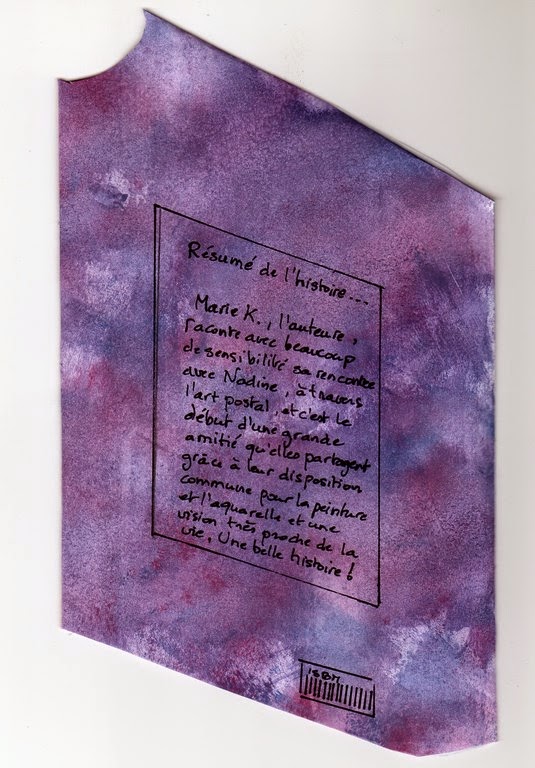 Résumé de l'histoire...
Marie K., l'auteure,
raconte avec beaucoup
de sensibilité sa rencontre
avec Nadine, à travers
l'art postal, et c'est le
début d'une grande
amitié qu'elles partagent
grâce à leur disposition
commune pour la peinture
et l'aquarelle et une
vision très proche de la
vie. Une belle histoire!
ISBN